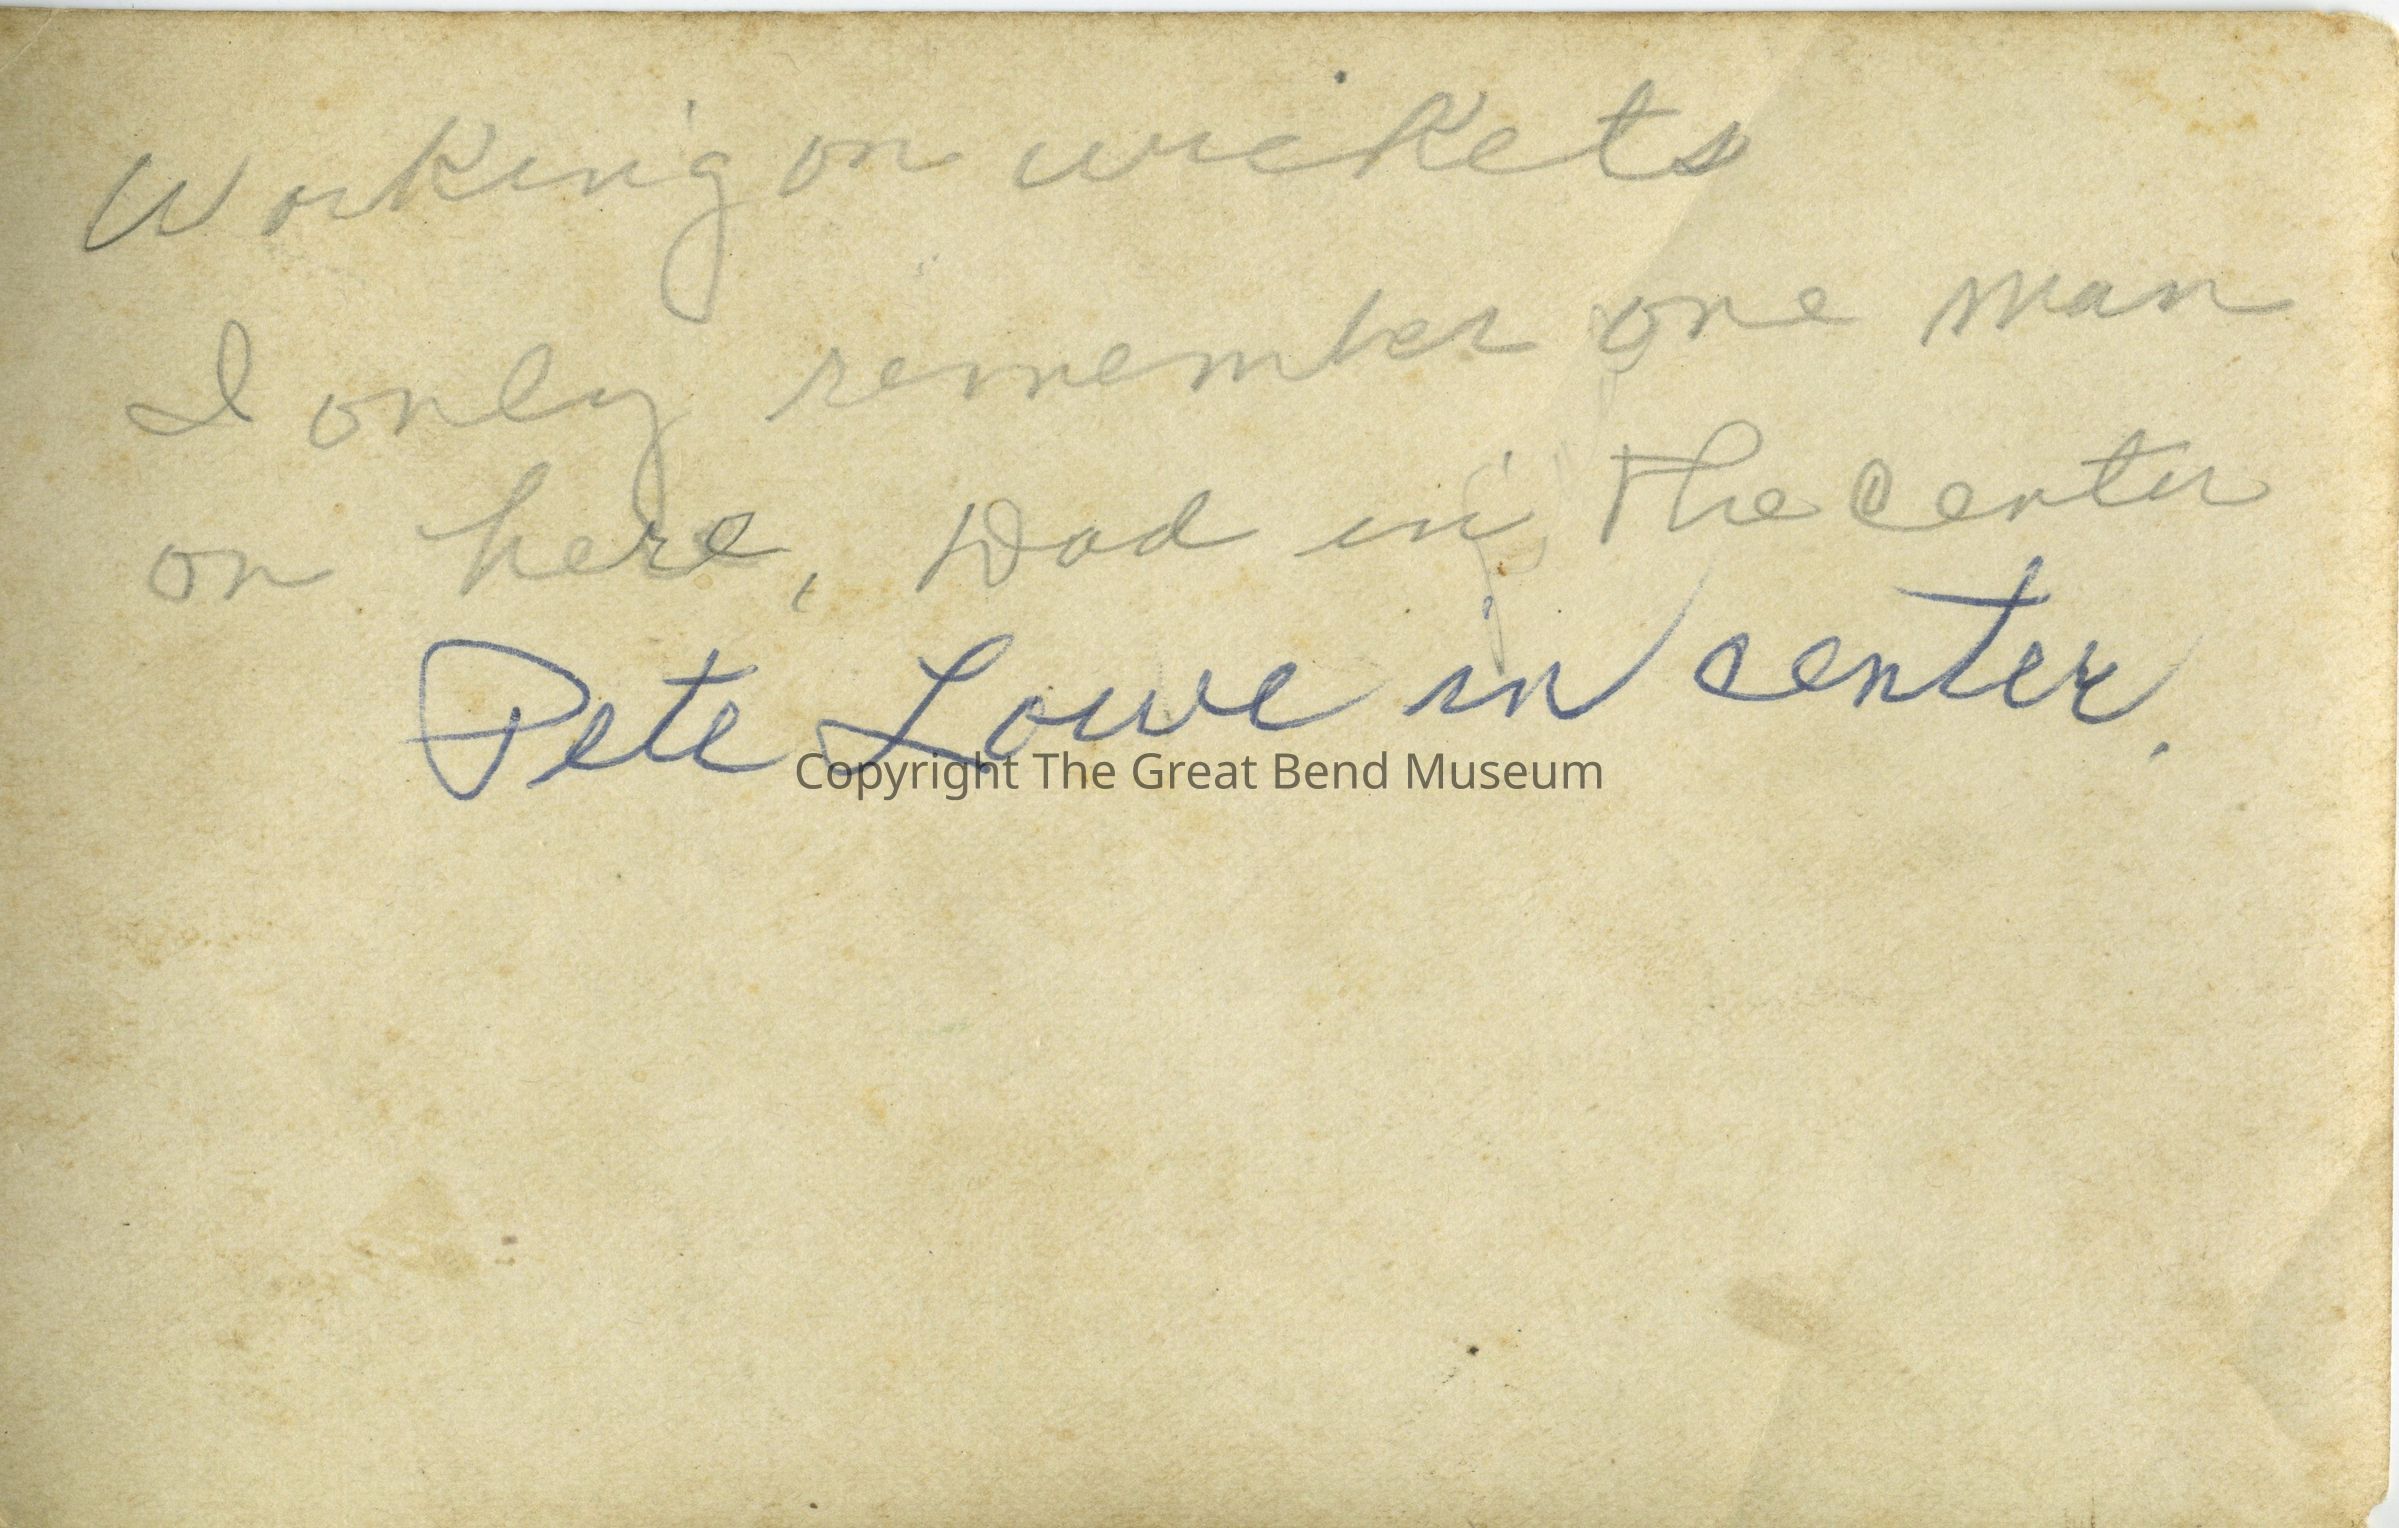 Working on wickets
I only remember one man
on here, Dad in the center
Pete Lowe in center.
Copyright The Great Bend Museum